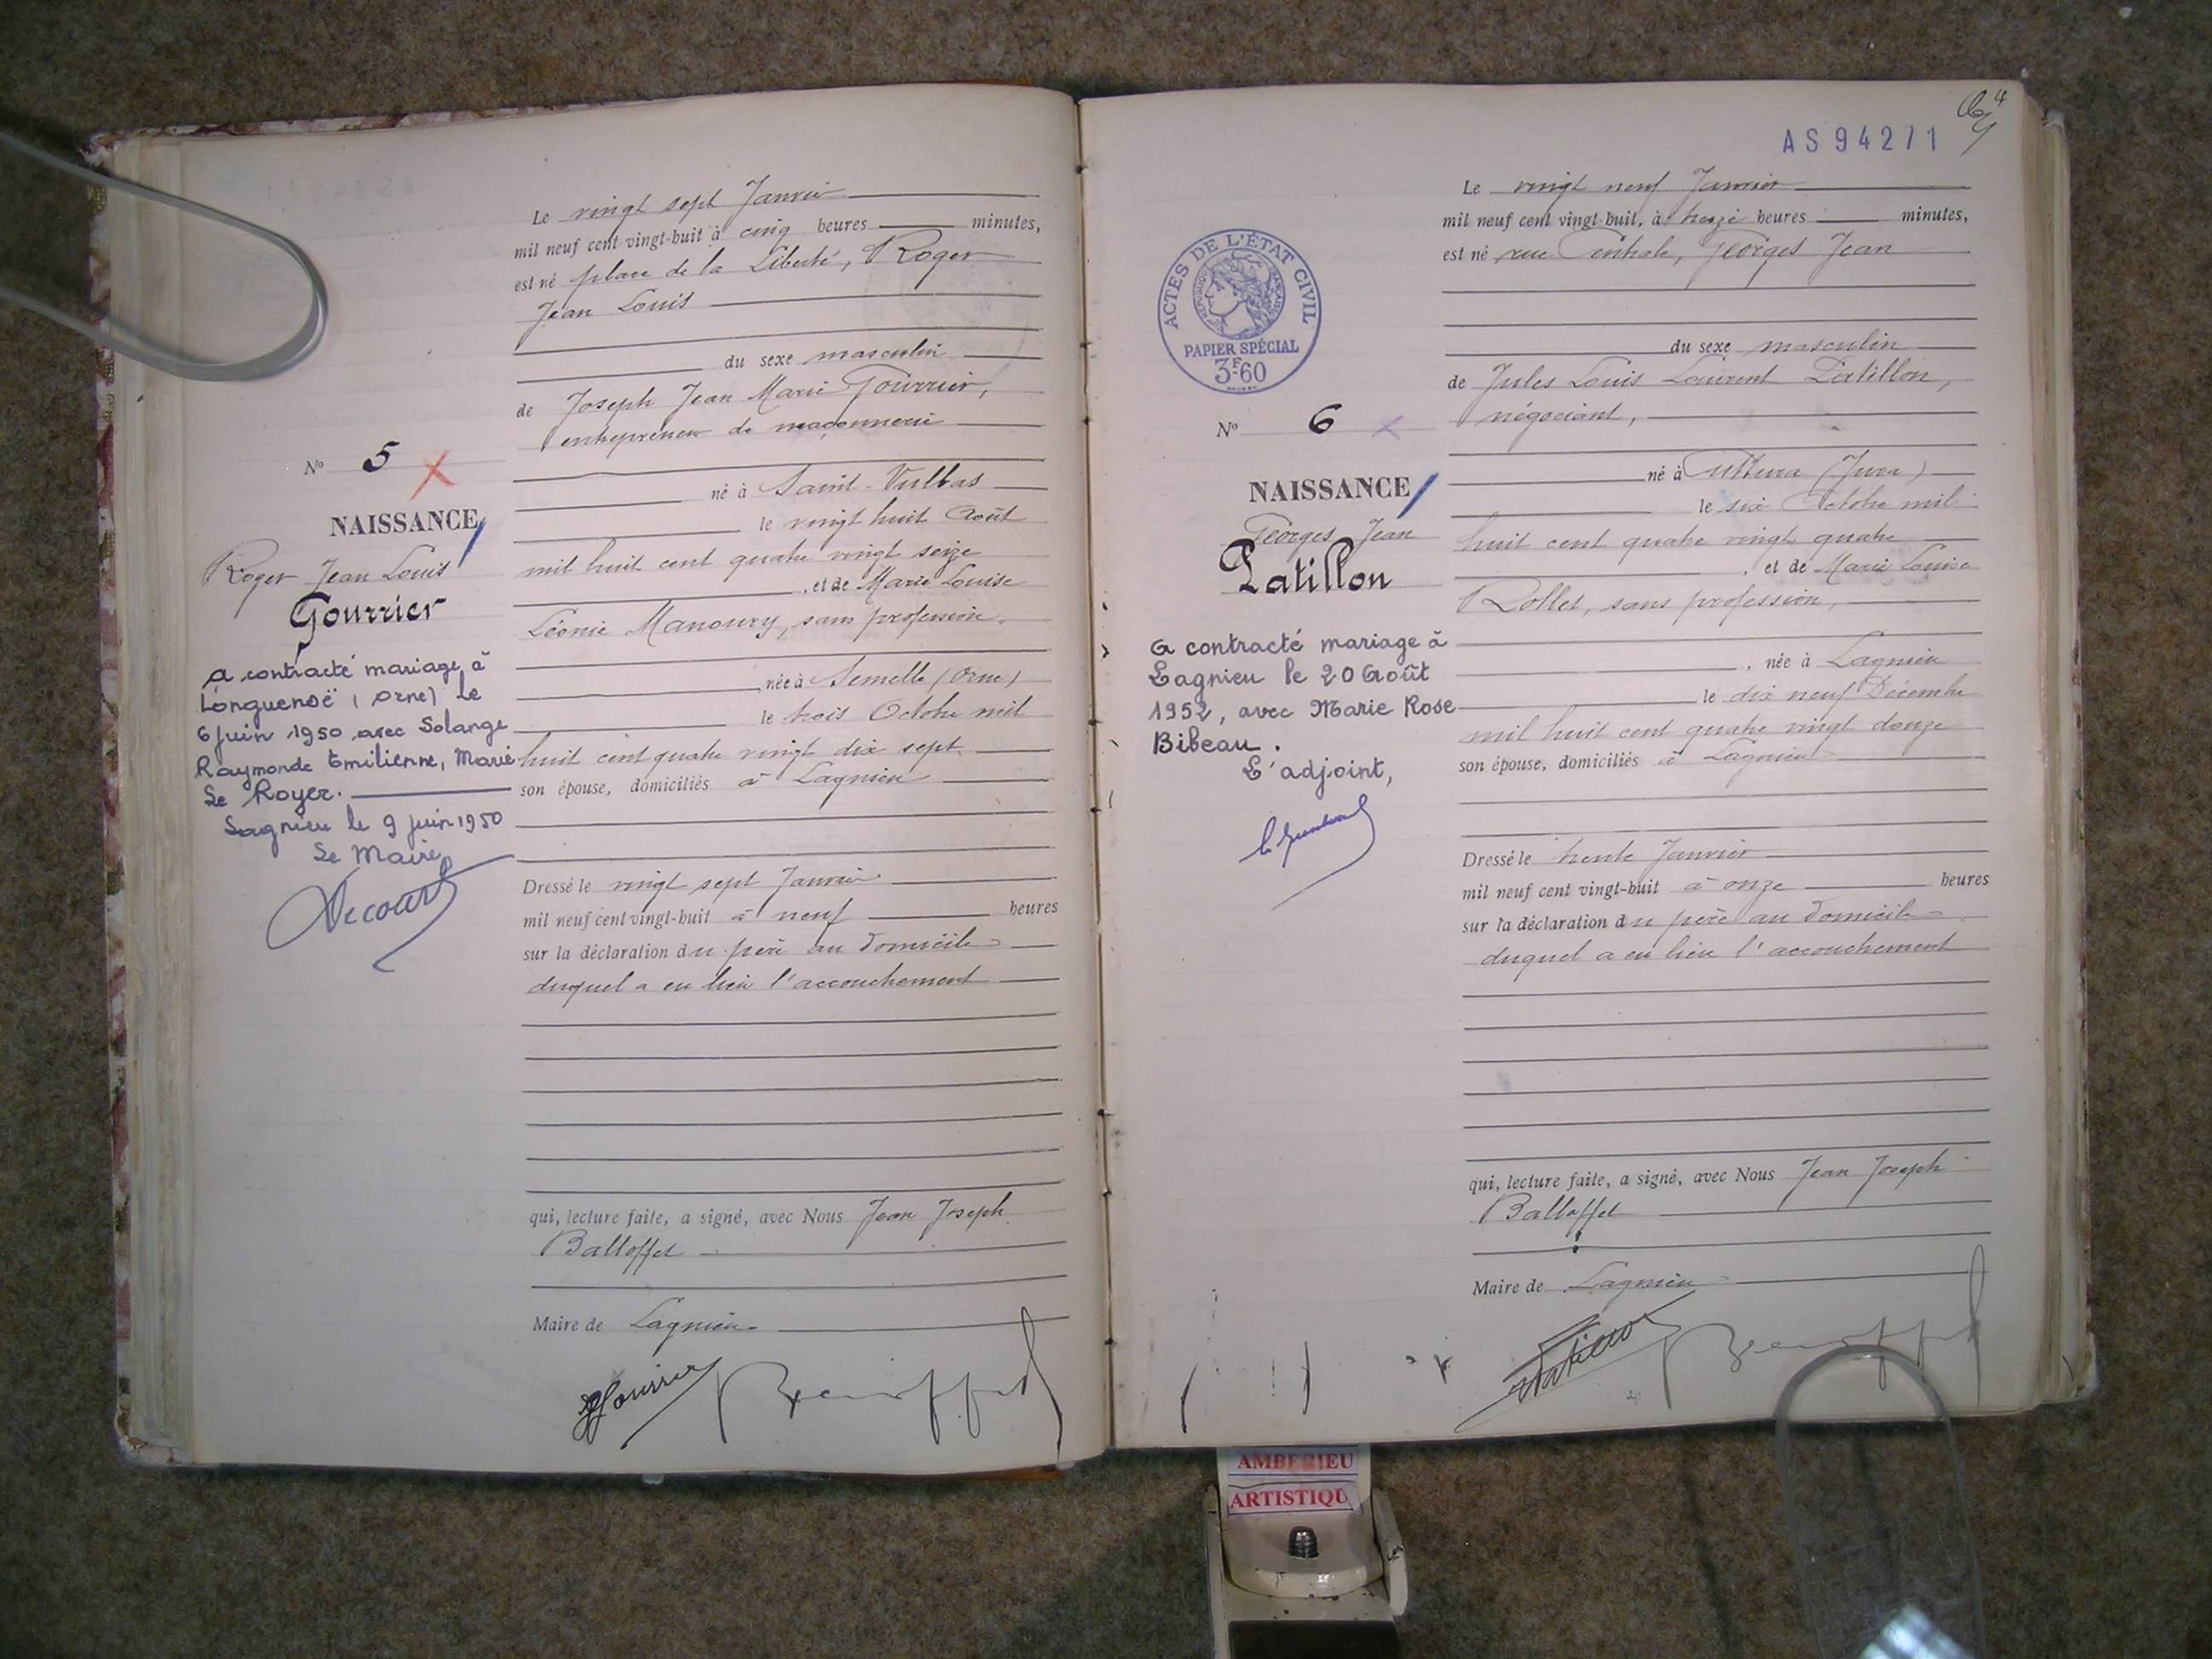 Le vingt sept Janvier
mil neuf cent vingt-huit à cinq heures minutes,
est né place de la Liberté, Roger
Jean Louis
du sexe masculin
de Joseph Jean Marie Gourrier,
entrepreneur de maçonnerie
né à Saint-Vulbas
le vingt huit Août
mil huit cent quatre vingt seize
, et de Marie Louise
Léonie Manoury, sans profession,
, née à Semelle (Orne)
le trois Octobre mil
huit cent quatre vingt dix sept
son épouse, domiciliés à Lagnieu
Dressé le vingt sept Janvier
mil neuf cent vingt-huit à neuf heures
sur la déclaration du père au domicile
duquel a eu lieu l'accouchement
qui, lecture faite, a signé, avec Nous Jean Joseph
Balloffet
Maire de Lagnieu
Gourrier
N° 5
NAISSANCE
Roger Jean Louis
Gourrier
a contracté mariage à
Longuenoë (Orne) le
6 juin 1950 avec Solange
Raymonde Emilienne, Marie
Le Royer.
Lagnieu le 9 juin 1950
Le Maire
AS94271
4
Le vingt neuf Janvier
mil neuf cent vingt-huit, à treize heures minutes,
est né rue Centrale, Georges Jean
du sexe masculin
de Jules Louis Laurent Patillon,
négociant,
né à Cuttura (Jura)
le six Octobre mil
huit cent quatre vingt quatre
, et de Marie Louise
Rollet, sans profession,
, née à Lagnieu
le dix neuf Décembre
mil huit cent quatre vingt douze
son épouse, domiciliés à Lagnieu
Dressé le trente Janvier
mil neuf cent vingt-huit à onze heures
sur la déclaration du père au domicile
duquel a eu lieu l'accouchement
qui, lecture faite, a signé, avec Nous Jean Joseph
Balloffet
Maire de Lagnieu
Patillon
ACTES DE L'ÉTAT CIVIL
RÉPUBLIQUE FRANÇAISE
PAPIER SPÉCIAL
3F60
N° 6
NAISSANCE
Georges Jean
Patillon
a contracté mariage à
Lagnieu le 20 Août
1952, avec Marie Rose
Bibeau.
L'adjoint,
AMBERIEU
ARTISTIQU